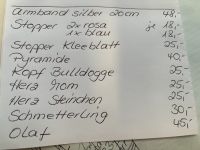 Armband silber 20cm 48,-
Stopper 2x rosa je 18,-
1x blau 18,-
Stopper Kleeblatt 25,-
Pyramide 40,-
Kopf Bulldogge 25,-
Herz 25,-
Herz Steinchen 25,-
Schmetterling 30,-
Olaf 45,-